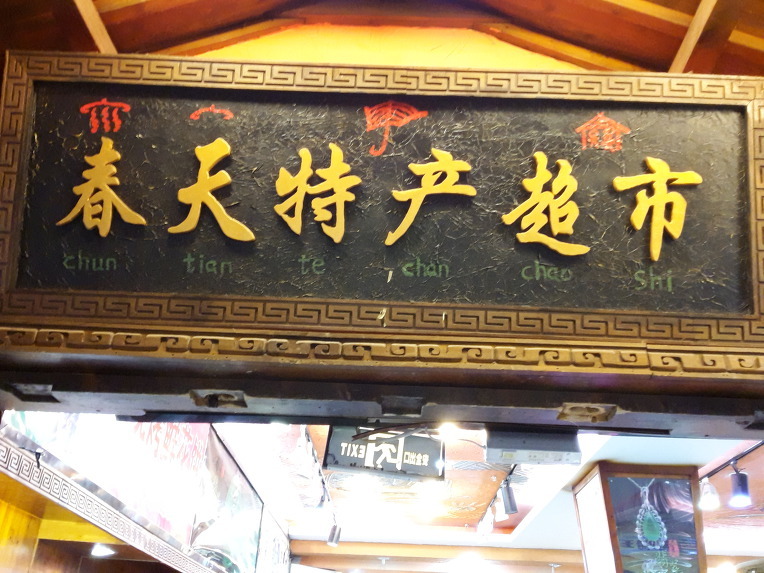 春天特产超市
chun tian te chan chao shi
EXIT 安全出口